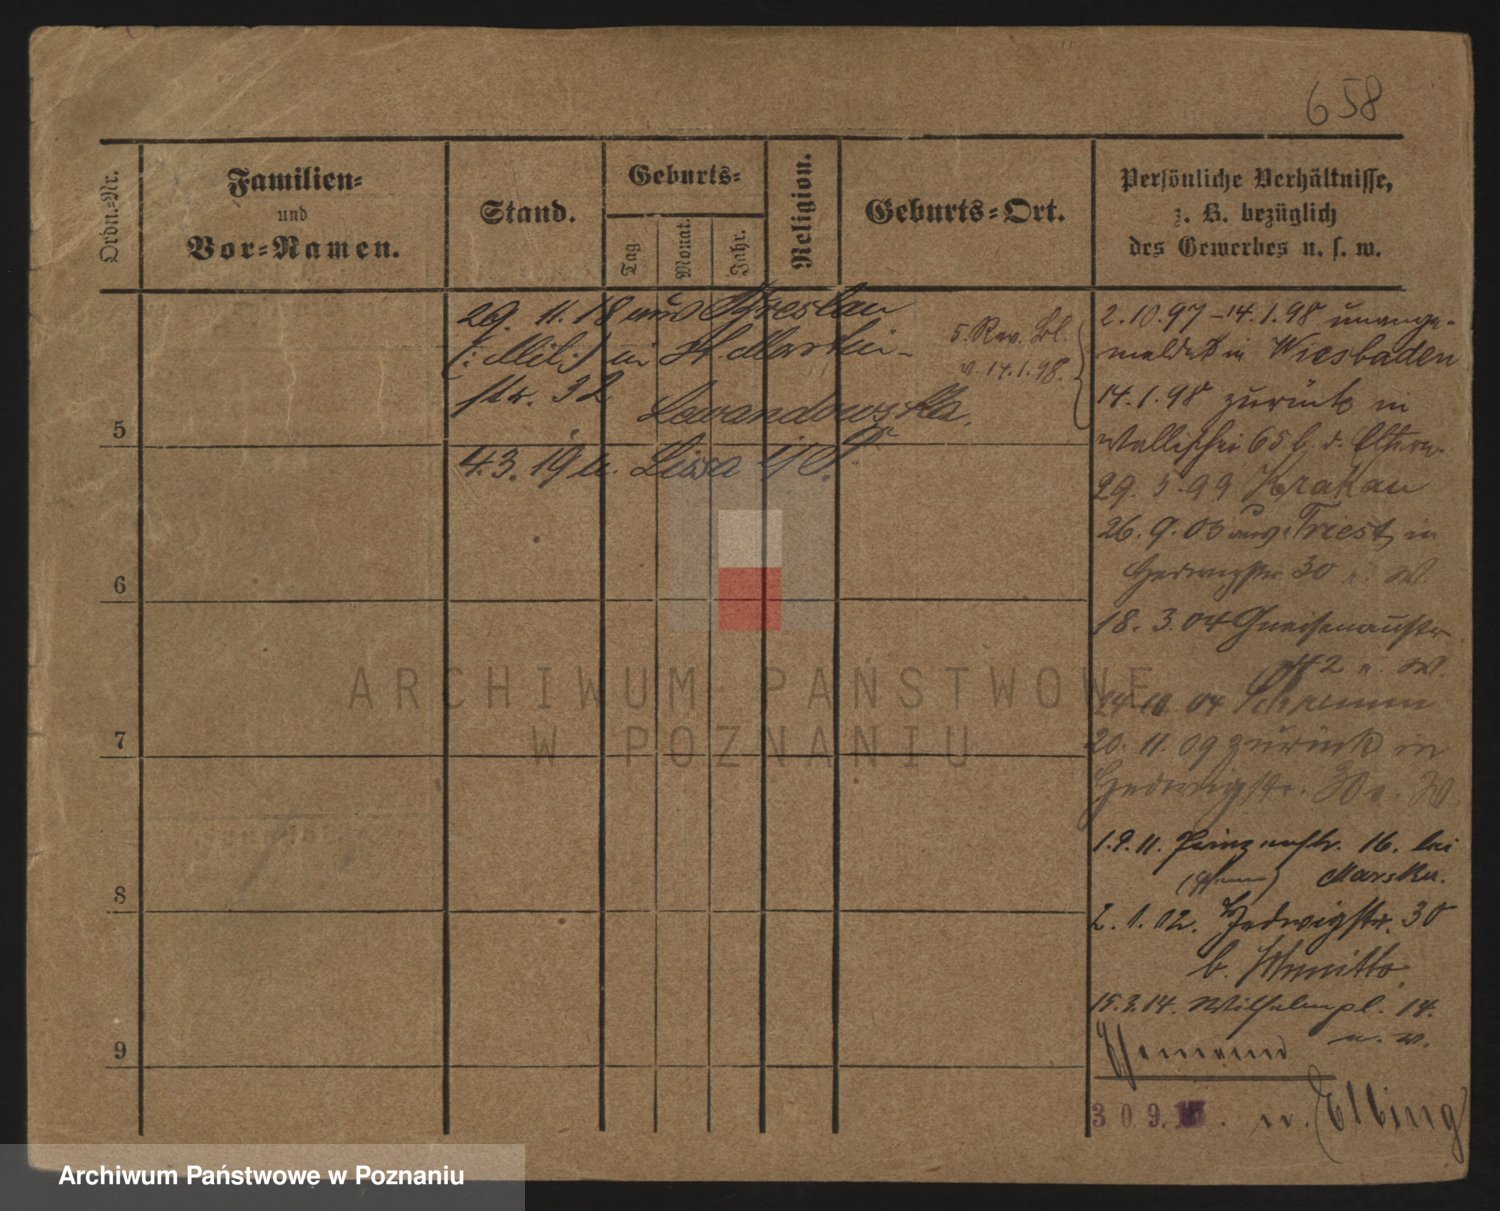 658
Ordn.-Nr.
Familien-
und
Vor-Namen.
Stand.
Geburts-
Tag.
Monat.
Jahr.
Religion.
Geburts-Ort.
Persönliche Verhältnisse,
z. B. bezüglich
des Gewerbes u. s. w.
29. 11. 18 aus Breslau
(: Mil :) in St. Martin-
str. 32
Lewandowska.
4. 3. 19 n. Lissa i/P.
5. Rev. Bl.
v. 14.1.98.
2.10.97-14.1.98 unange-
meldet in Wiesbaden
14.1.98 zurück in
Wallischei 65 b. d. Eltern.
29. 5. 99 Krakau
26. 9. 03 aus Triest, in
Hedwigstr. 30 u. W.
18. 3. 04 Gneisenaustr.
2 u. W.
04 Schrimm
20. 11. 09 zurück in
Hedwigstr. 30 u. W
1.9.11. Prinzenstr. 16. bei
Marsku.
2. 1. 12. Hedwigstr. 30
b.
15.3.14. Wilhelmpl. 14.
u. W.
Ehemann
30 9. 15. n. Elbing
5
6
7
8
9
ARCHIWUM PAŃSTWOWE
W POZNANIU
Archiwum Państwowe w Poznaniu